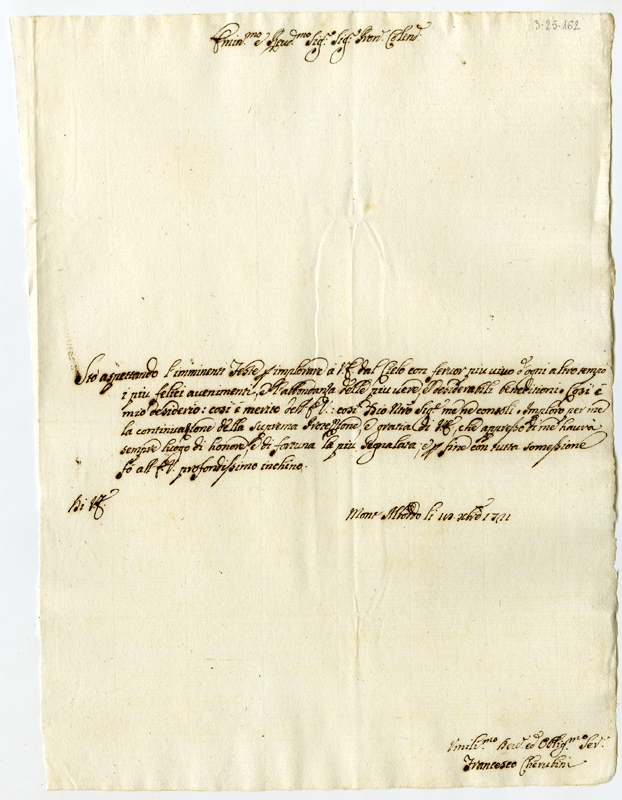 3-25-162
Emin.mo e Reu.mo Sig.e Sig.e Pron. Colend.
Sto aspettando l'imminenti Feste p implorare à V.E. dal Cielo con feruor piu uiuo d'ogni altro tempo
i piu felici auuenimenti, e l'abbondanza delle piu uere, e desiderabili beneditioni. Cosi è
mio desiderio: così è merito dell'E.V.: così Dio Nro Sig.e me ne consoli. Imploro per me
la continuazione della Suprema Protezzione, e gratia di V.E., che appresso di me haurà
sempre luogo di honore, e di fortuna la piu segnalata; e p fine con tutta somessione
fò all'E.V. profondissimo inchino.
Di V.E.
Mont' Alboddo li xbre 1721
Vmili.mo Deu. ed Obblig.mo Ser.
Francesco Cherubini